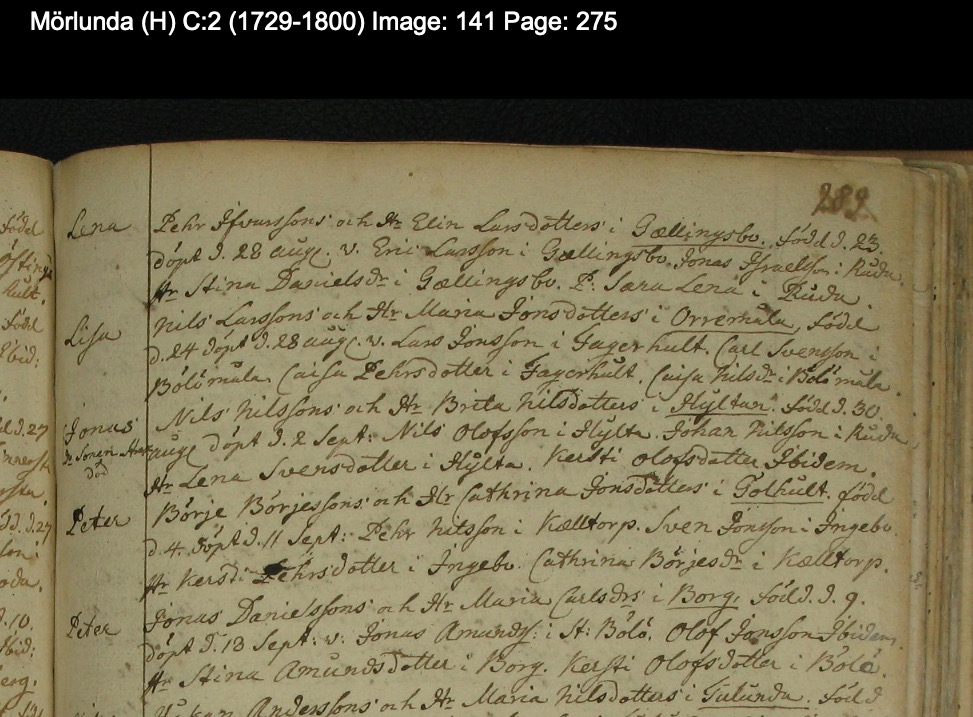 Mörlunda (H) C:2 (1729-1800) Image: 141 Page: 275
289
Lena Pehr Ifvarssons och Hr Elin Larsdotters i Gællingsbo. född d. 23
döpt d. 28 aug. v. Eric Larsson i Gællingsbo. Jonas Israelsson i Ruda
Hr Stina Danielsdr i Gællingsbo. P. Sara Lena i Ruda.
Lisa Nils Larssons och Hr Maria Jonsdotters i Orremåla, född
d. 24 döpt d. 28 aug. v. Lars Jonsson i Fagerhult. Carl Svensson i
Bölömåla. Caisa Pehrsdotter i Fagerhult. Caisa Nilsdr i Bölömåla.
Jonas Nils Nilssons och Hr Brita Nilsdotters i Hyltan. född d. 30
död aug. döpt d. 2 Sept: Nils Olofsson i Hylta. Johan Nilsson i Ruda
Hr Lena Svensdotter i Hylta. Kersti Olofsdotter Ibidem.
Peter Börje Börjessons och Hr Cathrina Jonsdotters i Tolhult. född
d. 4. döpt d. 11 Sept: Pehr Nilsson i Kælltorp. Sven Jonsson i Ingebo
Hr Kersti Pehrsdotter i Ingebo. Cathrina Börjesdr i Kælltorp.
Peter Jonas Danielssons och Hr Maria Carlsdrs i Borg. född d. 9.
döpt d. 13 Sept: v: Jonas Amunds: i St: Bölö. Olof Jonsson Ibidem.
Hr Stina Amundsdotter i Borg. Kersti Olofsdotter i Bölö.
Anderssons och Hr Maria Nilsdotters i Tulunda. född